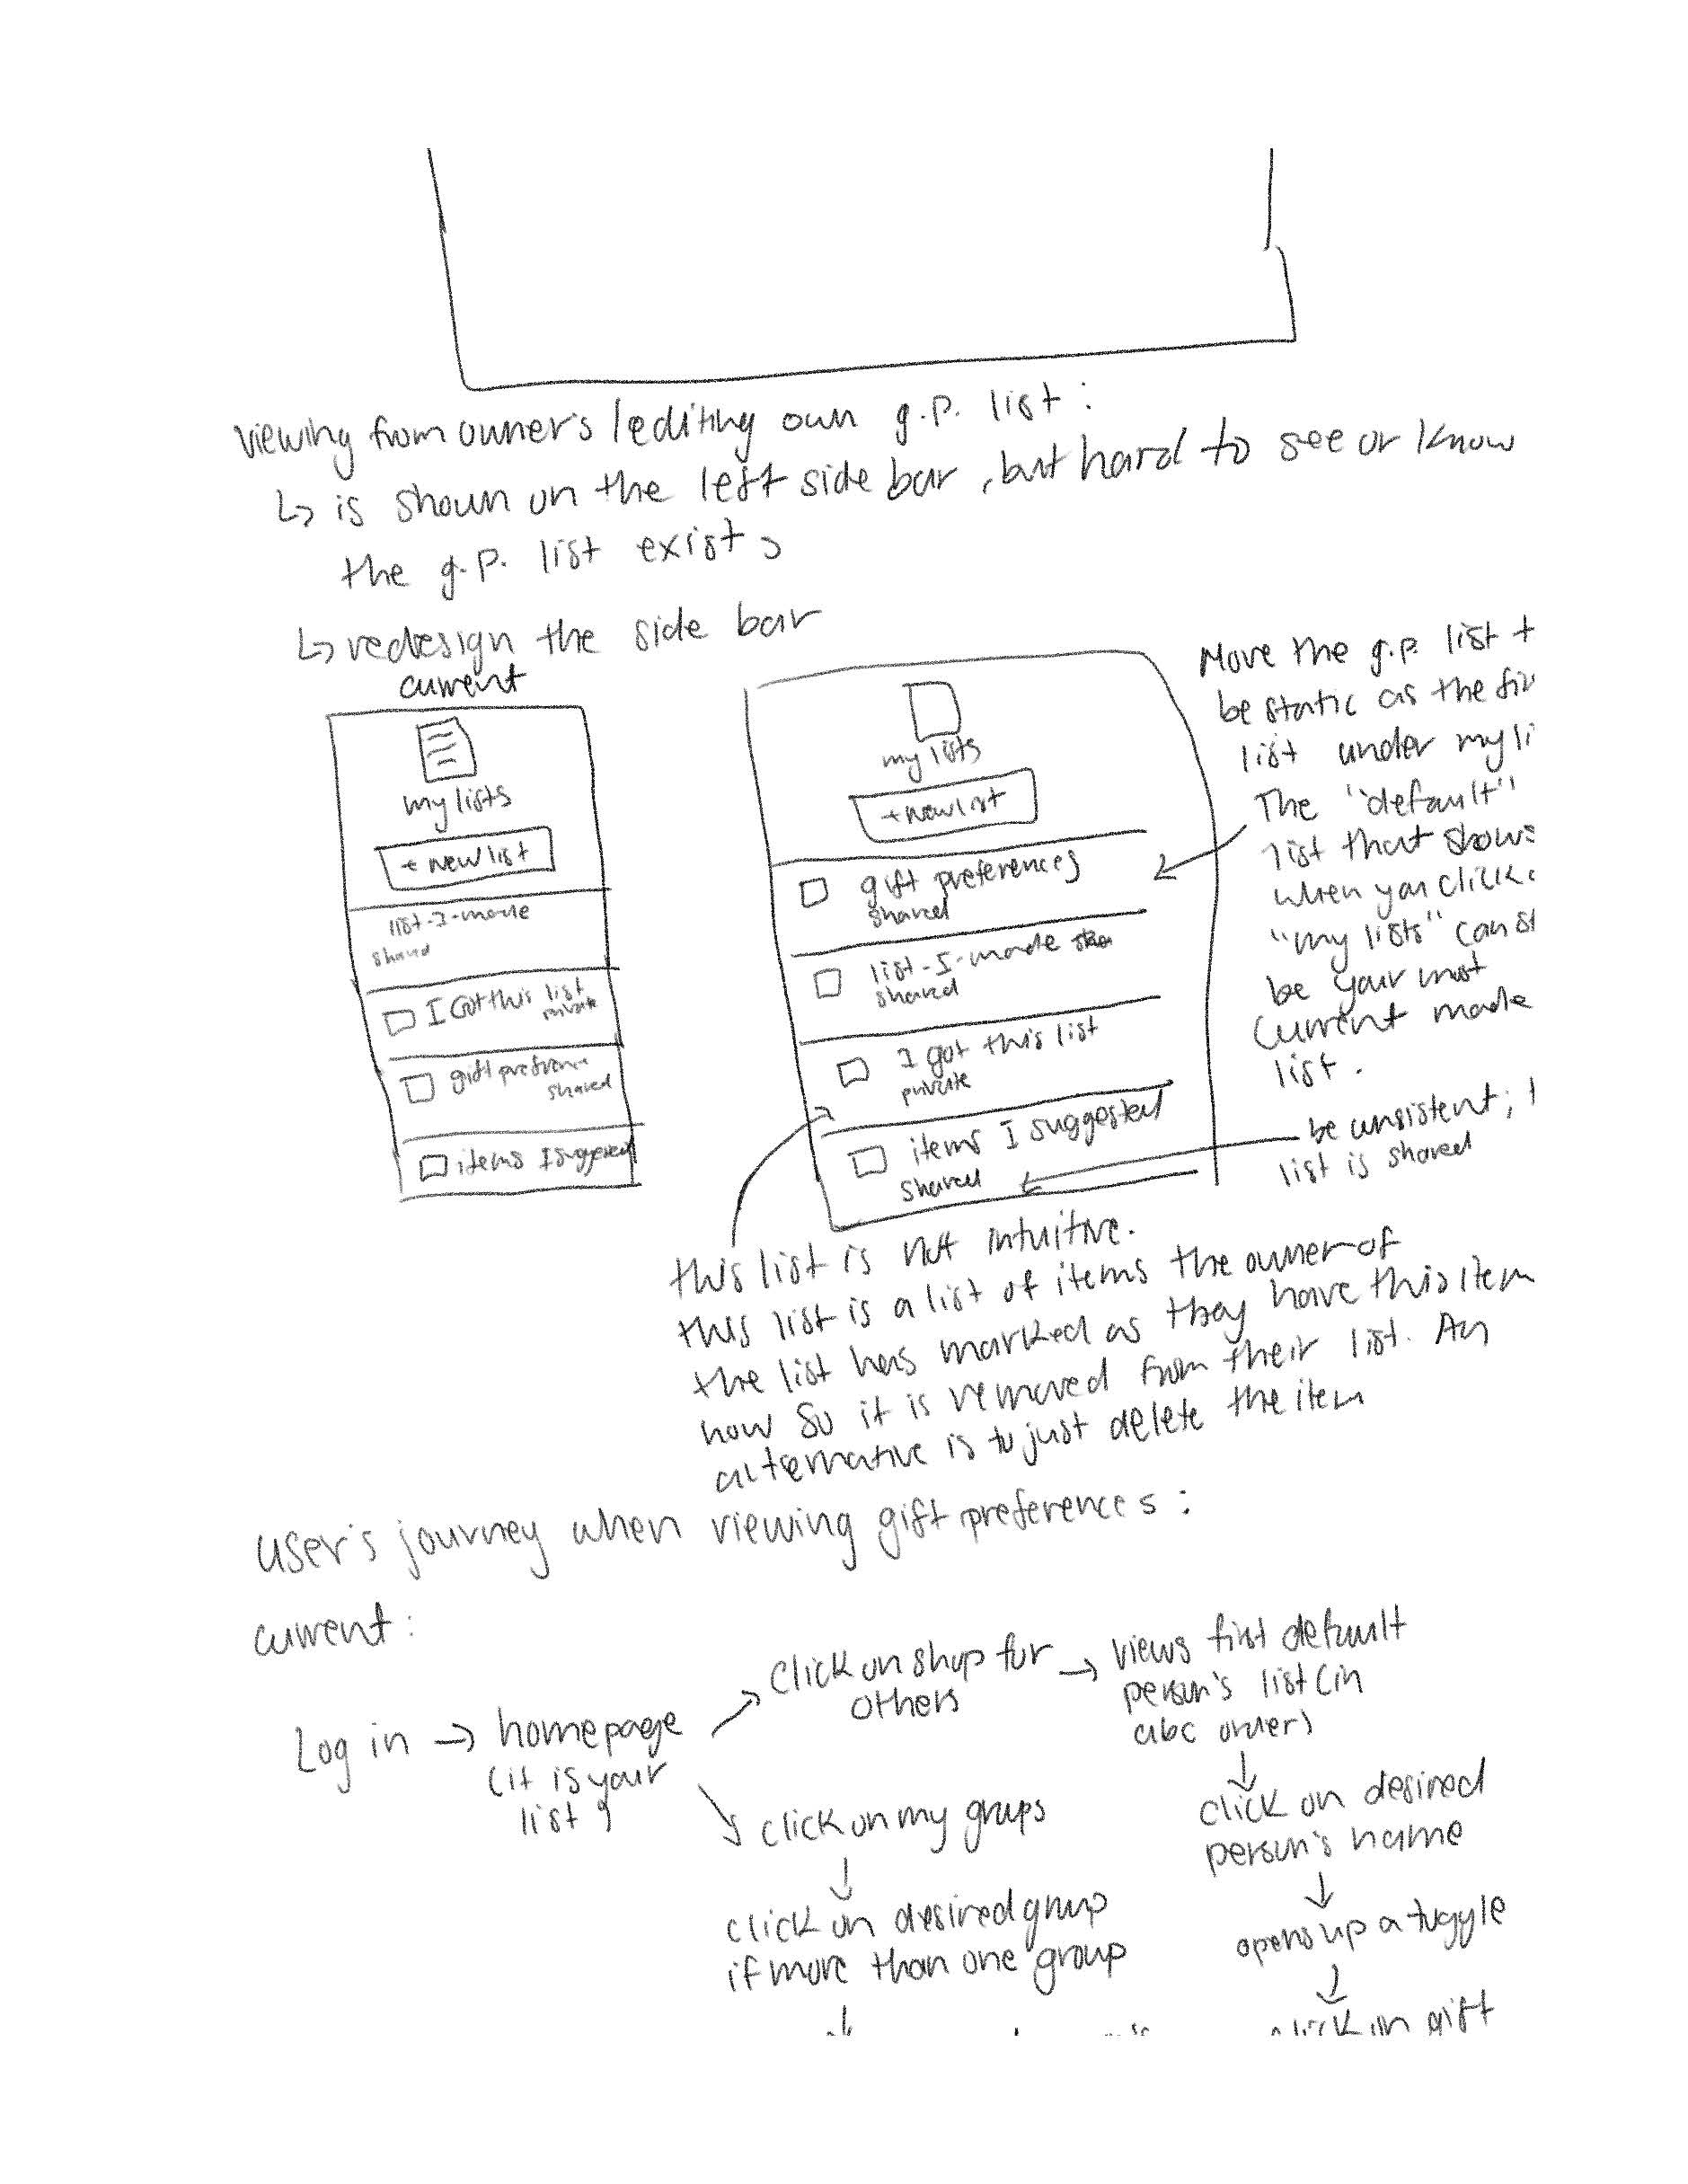 viewing from owner's/editing own g.p. list:
↳ is shown on the left side bar, but hard to see or know
the g.p. list exists
↳ redesign the side bar
current
my lists
+ new list
list-I-made
shared
I Got this list
private
gift preferen
shared
items I suggested
my lists
+ new list
gift preferences
shared
list-I-made
shared
I got this list
private
items I suggested
shared
Move the g.p. list t
be static as the fir
list under my li
The "default"
list that shows
when you click
"my lists" can st
be your most
current made
list.
be consistent;
list is shared
this list is not intuitive.
this list is a list of items the owner of
the list has marked as they have this item
now so it is removed from their list. An
alternative is to just delete the item
user's journey when viewing gift preferences:
current:
Log in → homepage
(it is your
list)
click on shop for
others
→ views first default
person's list (in
abc order)
↓
click on desired
person's name
↓
opens up a toggle
↓
click on gift
click on my groups
↓
click on desired group
if more than one group
↓